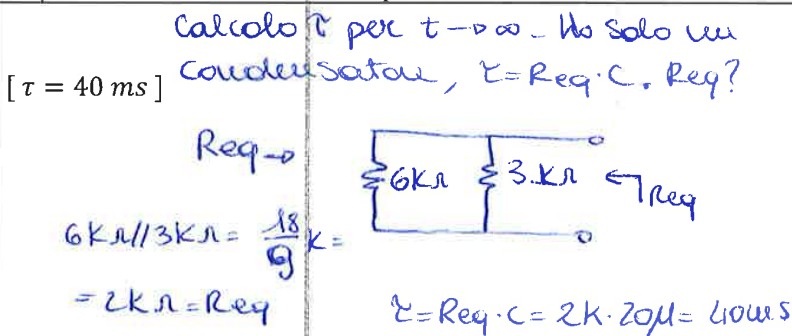 Calcolo τ per t→∞. Ho solo un
[ τ = 40 ms ] condensatore, τ=Req·C. Req?
Req→
6KΩ 3.KΩ ←Req
6KΩ//3KΩ= 18/9 K=
=2KΩ=Req
τ=Req·C=2K·20μ=40ms